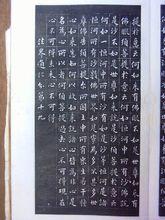 提於意云何如來有佛眼不如是世尊如來有
佛眼須菩提於意云何如恒河中所有沙佛說
是沙不如是世尊如來說是沙須菩提於意云
何如一恒河中所有沙有如是沙等恒河是諸
恒河所有沙數佛世界如是寧為多不甚多世
尊佛告須菩提爾所國土中所有眾生若干種
心如來悉知何以故如來說諸心皆為非心是
名為心所以者何須菩提過去心不可得現在
心不可得未來心不可得
法界通化分第十九